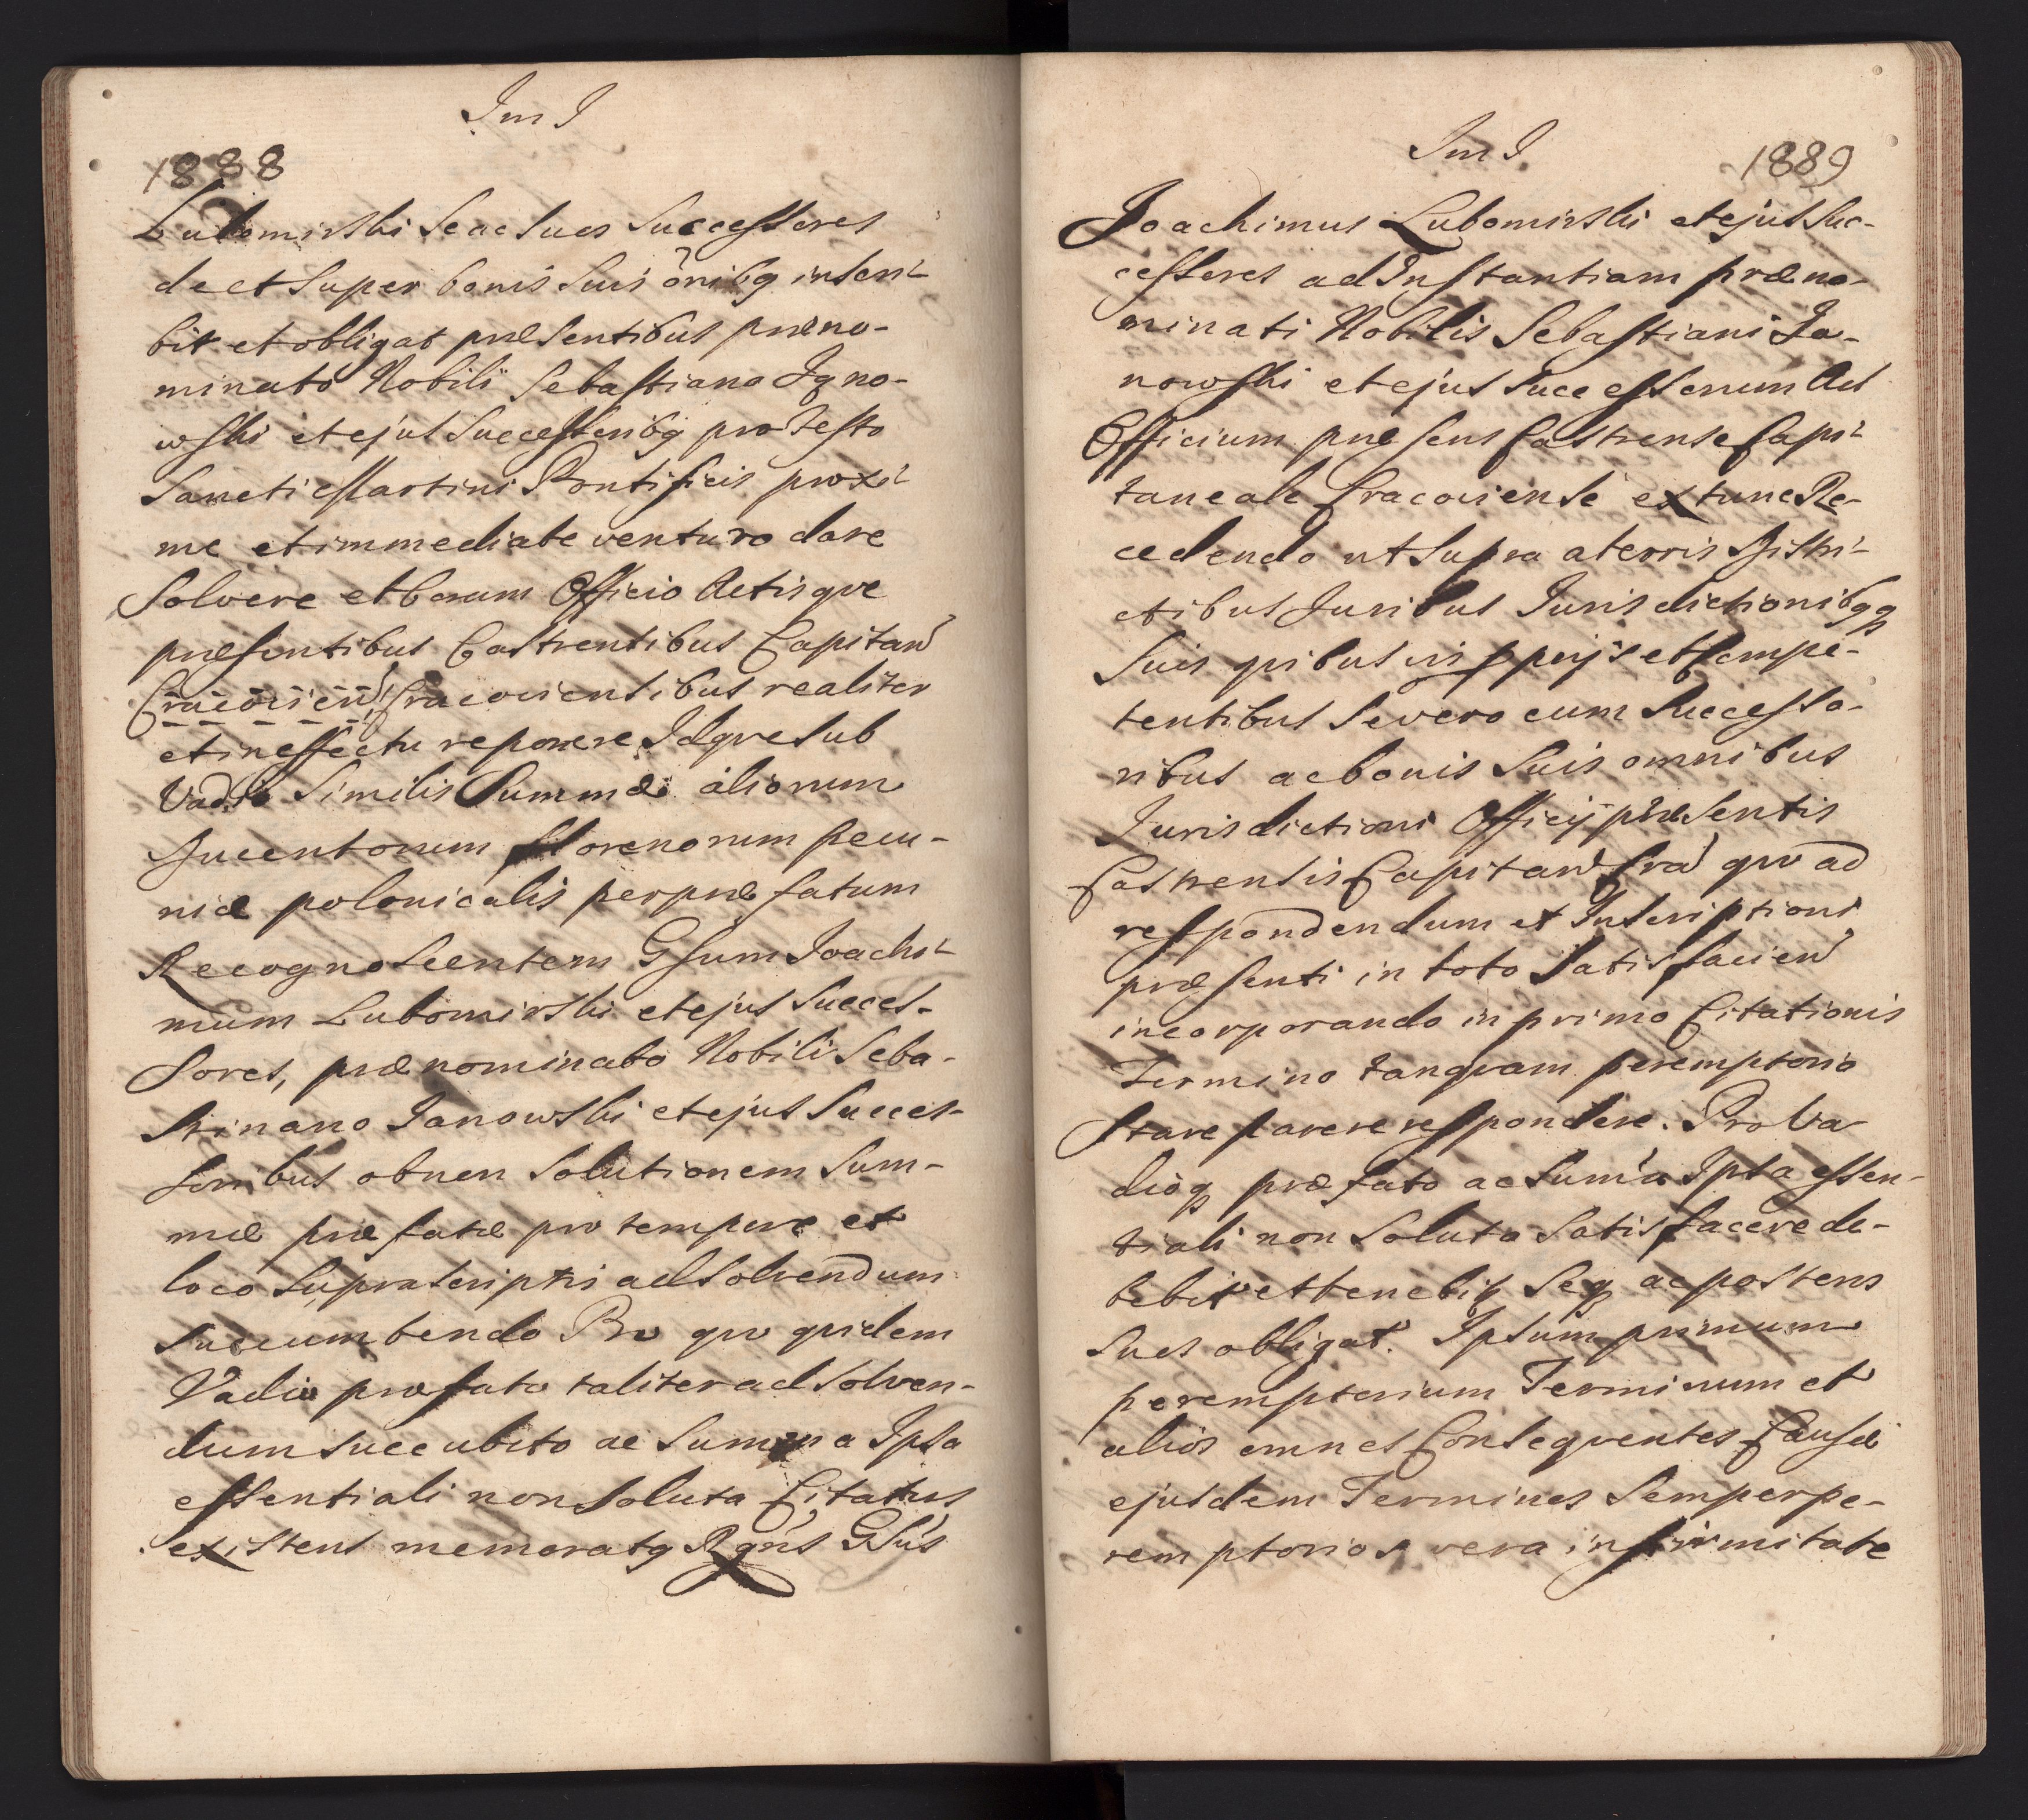 Im I
1888
Lubomirski Se ac Suos Successores
de et Super bonis Suis oribq inscri-
bit et obligat præsentibus præno-
minato Nobili Sebastiano Jano-
wski et ejus Successoribq pro Festo
Sancti Martini Pontificis proxi-
me et immediate venturo dare
Solvere et Coram Officio Actisqve
præsentibus Castrensibus Capitan
Cracovien Cracoviensibus realiter
et in effectu reponere Idqve Sub
Vadio Similis Summæ aliorum
Ducentorum florenorum pecu-
niæ polonicalis per præfatum
Recognoscentem Gsum Joachi-
mum Lubomirski et ejus Succes-
Sores, prænominato Nobili Seba-
stinano Janowski et ejus Succes-
soribus ob non Solutionem Sum-
mæ præfatæ pro tempore et
loco Suprascriptis ad Solvendum
Succumbendo Pro qvo qvidem
Vadio præfato taliter ad Solven-
dum Succubito ac Summa Ipsa
essentiali non Soluta Citatus
existens memoratq Rgns Gsus
Im I
1889
Joachimus Lubomirski et ejus Suc-
cessores ad Instantiam præno-
minati Nobilis Sebastiani Ja-
nowski et ejus Successorum Ad
Officium præsens Castrense Capi-
taneale Cracoviense ex tunc Re-
cedendo ut Supra a terris Distri-
ctibus Juribus Jurisdictionibqq
Suis qvibusvis ppijs et Compe-
tentibus Se vero cum Successo-
ribus ac bonis Suis omnibus
Jurisdictioni Officij præsentis
Castrensis Capitan Cra qvo ad
respondendum et Inscriptioni
præsenti in toto Satisfacien
incorporando in primo Citationis
Termino tanqvam peremptorio
Stare parere respondere. Pro Va
dioq præfato ac Suma Ipsa essen-
tiali non Soluta Satisfacere de-
bebit et tenebitq Seq ac posteros
Suos obligat. Ipsum primum
peremptorium Terminum et
alios omnes Conseqventes Causæ
ejusdem Terminos Semper pe-
remptorios vera infirmitate